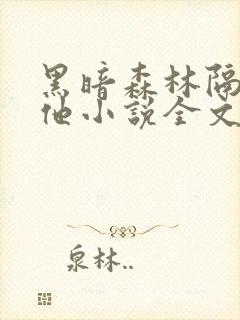 黑暗森林隔
他小说全文
泉林..